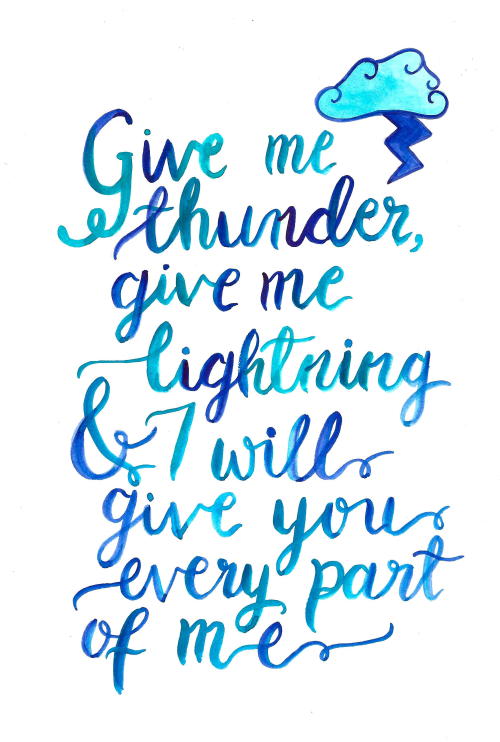 Give me
thunder,
give me
lightning
& I will
give you
every part
of me